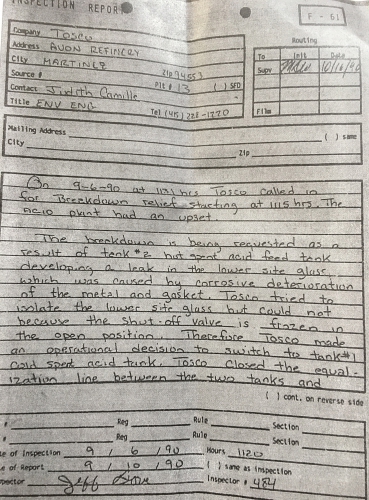 INSPECTION REPORT
F - 51
Company Tosco
Address AVON REFINERY
City MARTINEZ Zip 94553
Source # Plt # 13 ( ) SFD
Contact Judith Camille
Title ENV ENG Tel (415) 228-1220
Routing
To Init Date
Supv 10/16/90
File
Mailing Address ( ) same
City Zip
On 9-6-90 at 1131 hrs Tosco called in
for Breakdown relief starting at 1115 hrs. The
acid plant had an upset.
The breakdown is being requested as a
result of tank #2 hot spent acid feed tank
developing a leak in the lower site glass,
which was caused by corrosive deterioration
of the metal and gasket. Tosco tried to
isolate the lower site glass but could not
because the shut-off valve is frozen in
the open position. Therefore Tosco made
an operational decision to switch to tank #1
cold spent acid tank. Tosco closed the equal-
ization line between the two tanks and
( ) cont. on reverse side
# Reg Rule Section
# Reg Rule Section
te of Inspection 9 / 6 / 90 Hours 1120
te of Report 9 / 10 / 90 ( ) same as inspection
pector Jeff Inspector # 484